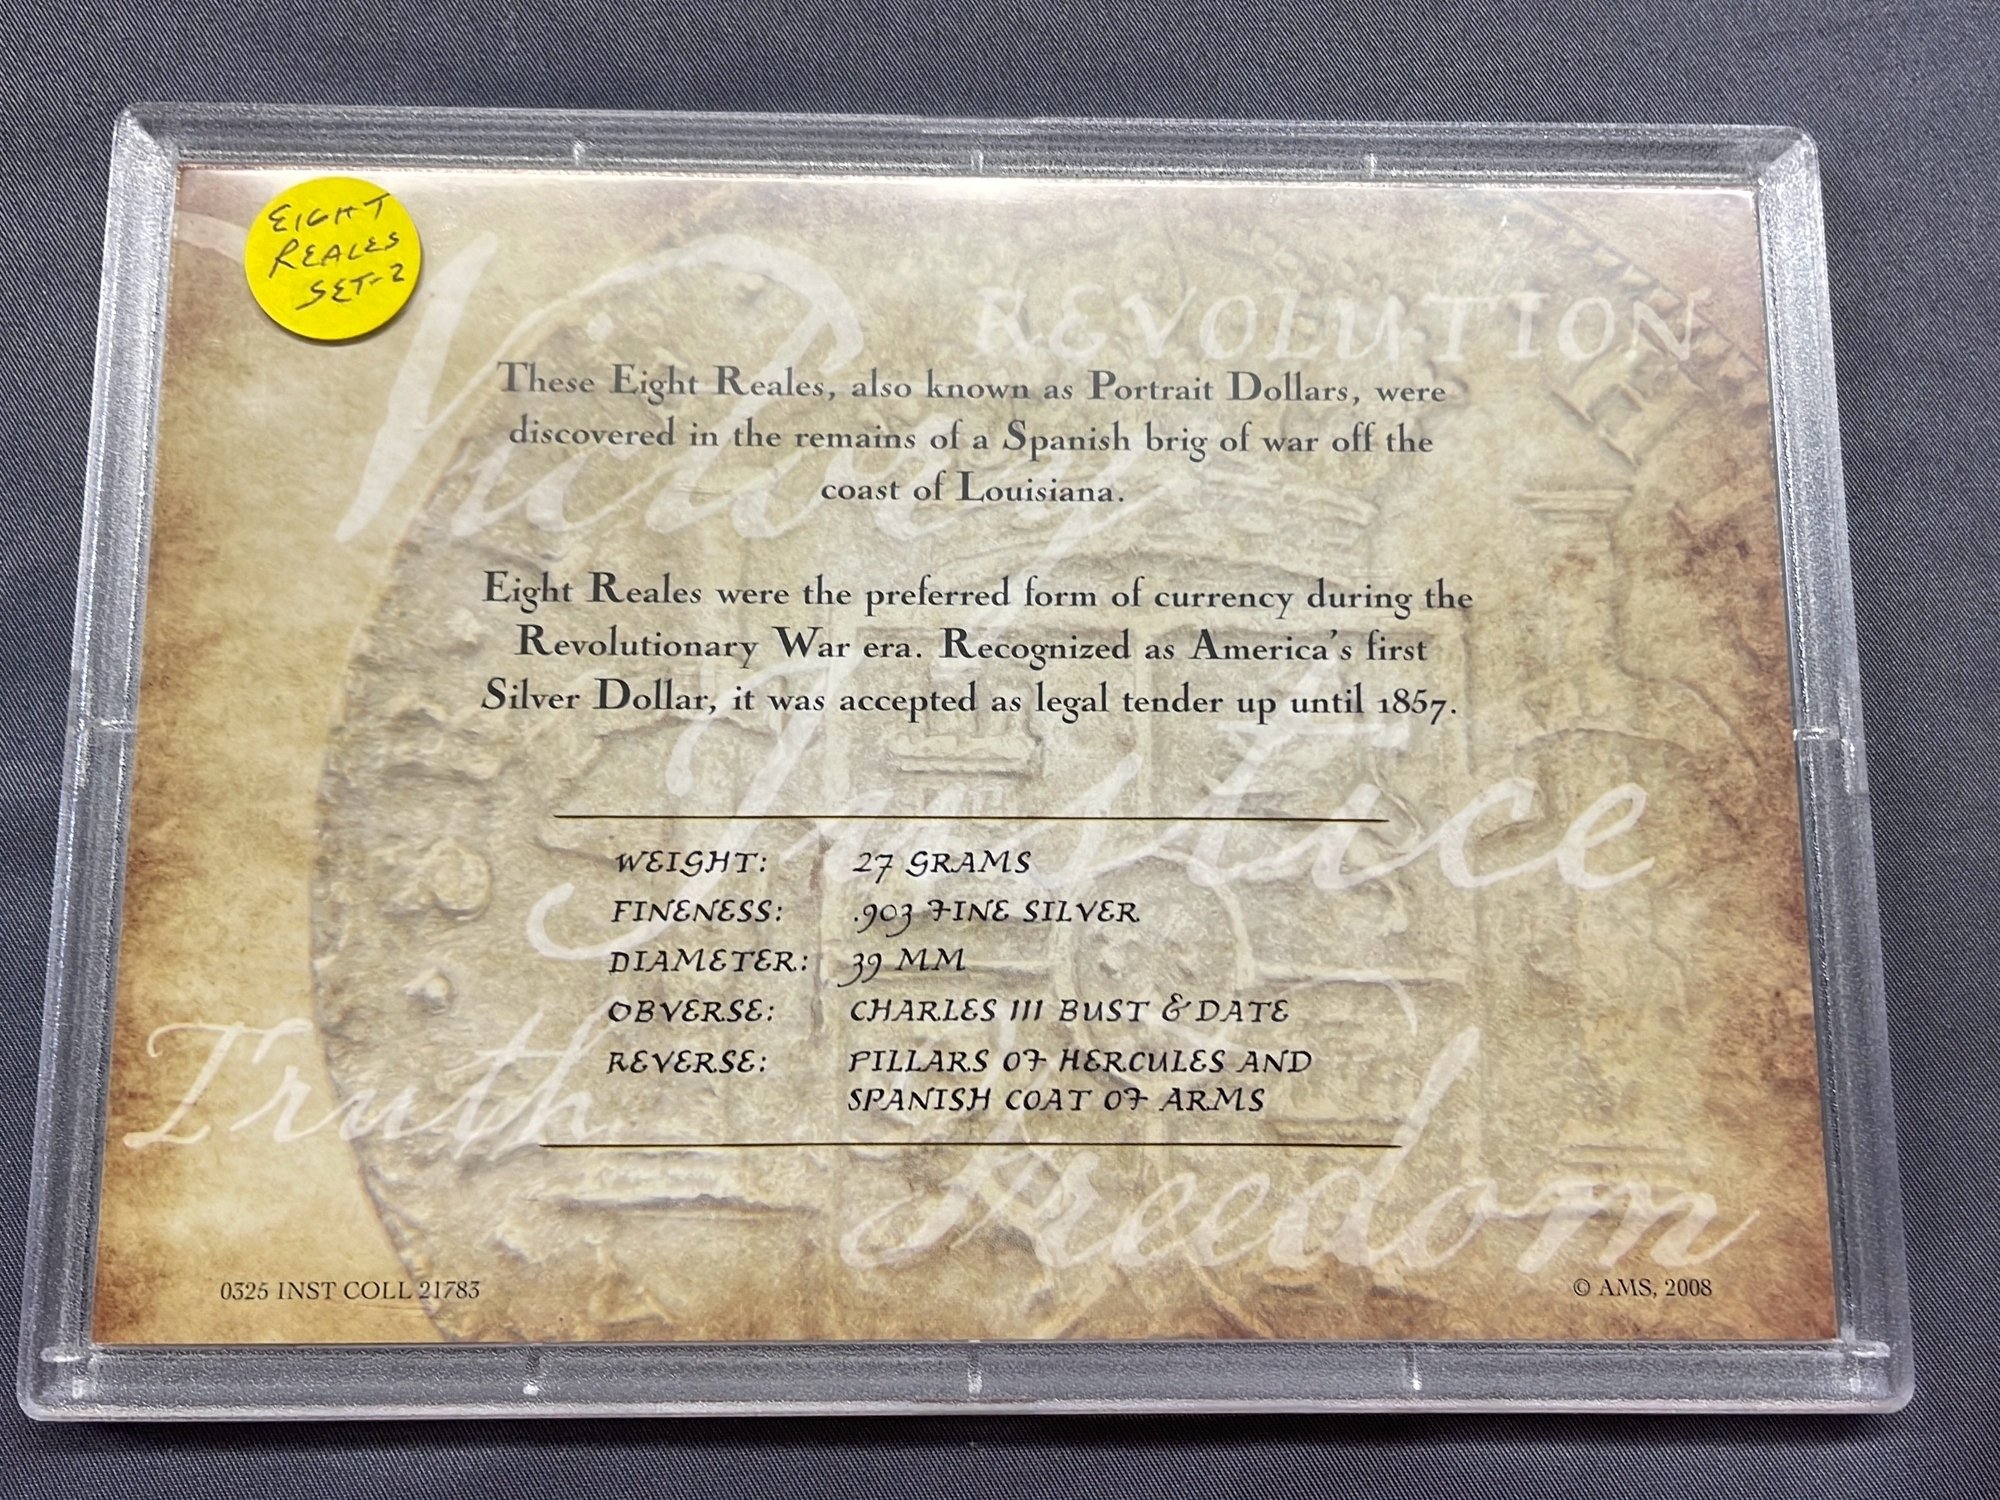 EIGHT
REALES
SET-2
Victory
REVOLUTION
These Eight Reales, also known as Portrait Dollars, were
discovered in the remains of a Spanish brig of war off the
coast of Louisiana.
Eight Reales were the preferred form of currency during the
Revolutionary War era. Recognized as America's first
Silver Dollar, it was accepted as legal tender up until 1857.
Justice
WEIGHT: 27 GRAMS
FINENESS: .903 FINE SILVER
DIAMETER: 39 MM
OBVERSE: CHARLES III BUST & DATE
REVERSE: PILLARS OF HERCULES AND
SPANISH COAT OF ARMS
Truth
Freedom
0325 INST COLL 21783
© AMS, 2008